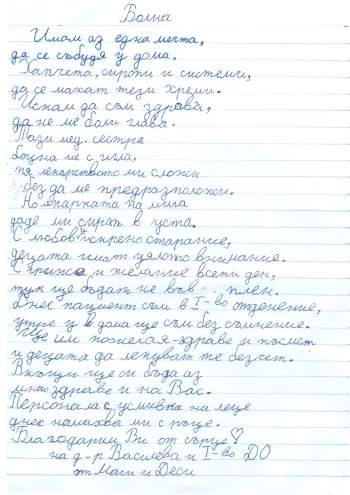 Болна
Имам аз една мечта,
да се събудя у дома.
Хапчета, сиропи и системи,
да се махат тези хреми.
Искам да съм здрава,
да не ме боли глава.
Тази мед. сестра
боцна ме с игла,
тя лекарството ми сложи
без да ме предразположи.
Но лекарката ми мила
даде ми сироп в уста.
С любов искрено старание,
децата имат цялото внимание.
С грижа и желание всеки ден,
тук ще бъдат не във плен.
Днес пациент съм в I-во отделение,
утре у дома ще съм без съмнение.
Ще им пожелая здраве и късмет
и децата да лекуват те безчет.
Вкъщи ще си бъда аз
много здраве и на Вас.
Персонала с усмивка на лице
днес помахва ми с ръце.
Благодарим Ви от сърце!
на д-р Василева и I-во ДО
от Маги и Деси